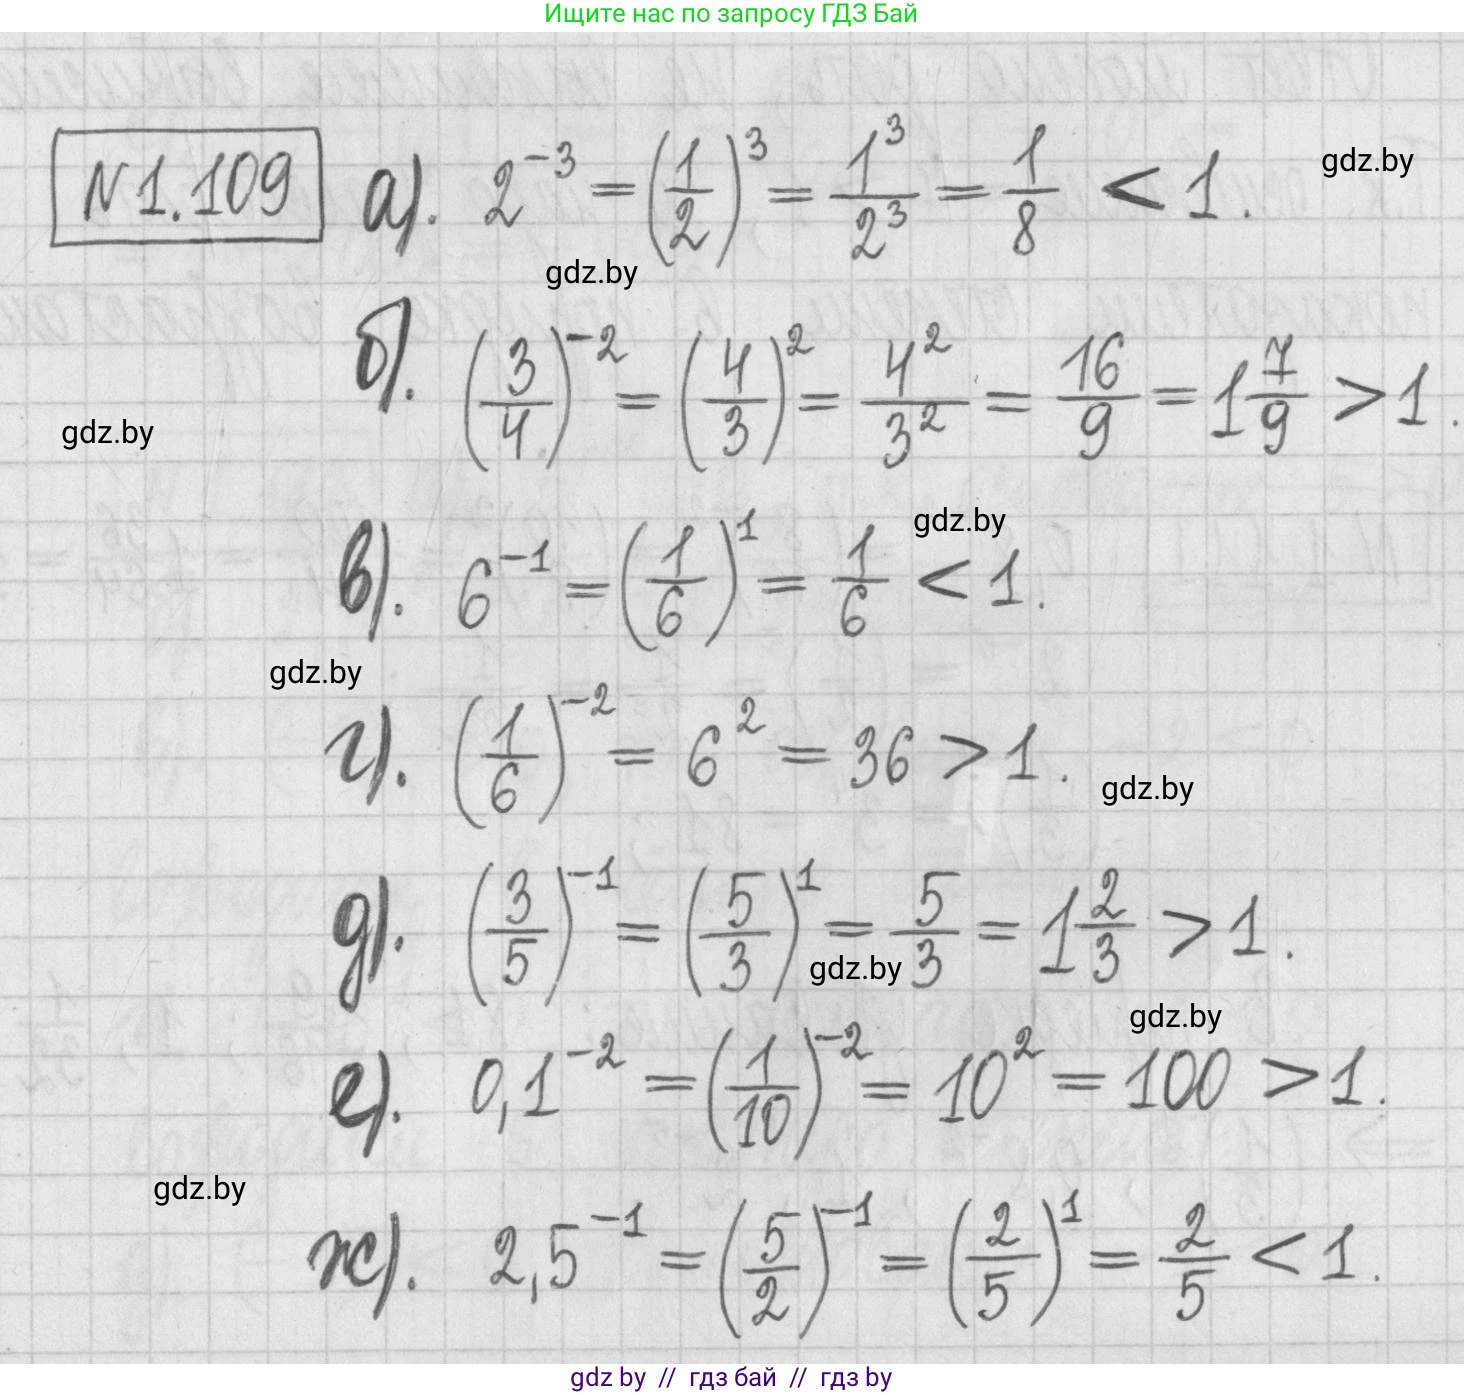 Ищите нас по запросу ГДЗ Бай
№1.109 а). 2^{-3} = (1/2)^3 = 1^3/2^3 = 1/8 < 1.
gdz.by
gdz.by
б). (3/4)^{-2} = (4/3)^2 = 4^2/3^2 = 16/9 = 1 7/9 > 1.
gdz.by
gdz.by
в). 6^{-1} = (1/6)^1 = 1/6 < 1.
gdz.by
г). (1/6)^{-2} = 6^2 = 36 > 1.
gdz.by
д). (3/5)^{-1} = (5/3)^1 = 5/3 = 1 2/3 > 1.
gdz.by
gdz.by
е). 0,1^{-2} = (1/10)^{-2} = 10^2 = 100 > 1.
gdz.by
ж). 2,5^{-1} = (5/2)^{-1} = (2/5)^1 = 2/5 < 1.
gdz by // гдз бай // гдз by